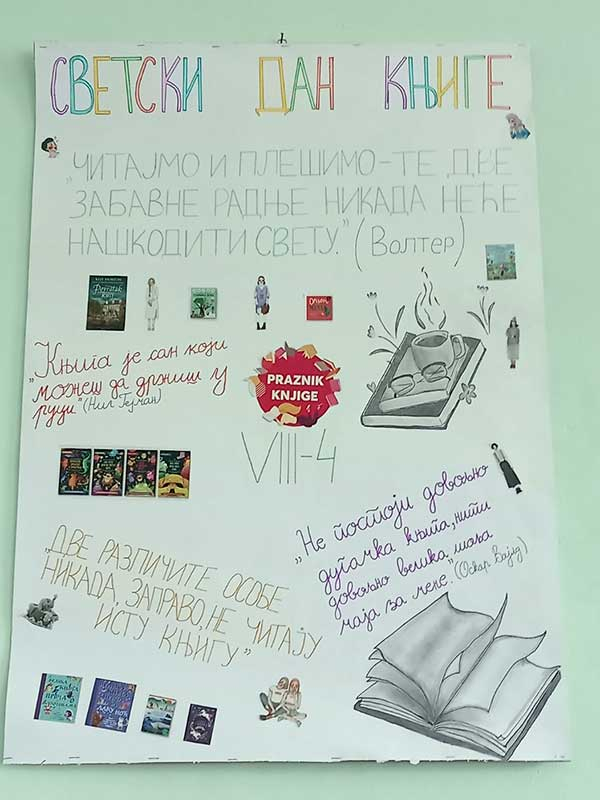 СВЕТСКИ ДАН КЊИГЕ
„ЧИТАЈМО И ПЛЕШИМО-ТЕ ДВЕ
ЗАБАВНЕ РАДЊЕ НИКАДА НЕЋЕ
НАШКОДИТИ СВЕТУ.” (Волтер)
„Књига је сан који
можеш да држиш у
руци” (Нил Гејман)
PRAZNIK
KNJIGE
VIII-4
„Не постоји довољно
дугачка књига, нити
довољно велика шоља
чаја за мене.” (Оскар Вајлд)
„ДВЕ РАЗЛИЧИТЕ ОСОБЕ
НИКАДА, ЗАПРАВО, НЕ ЧИТАЈУ
ИСТУ КЊИГУ”